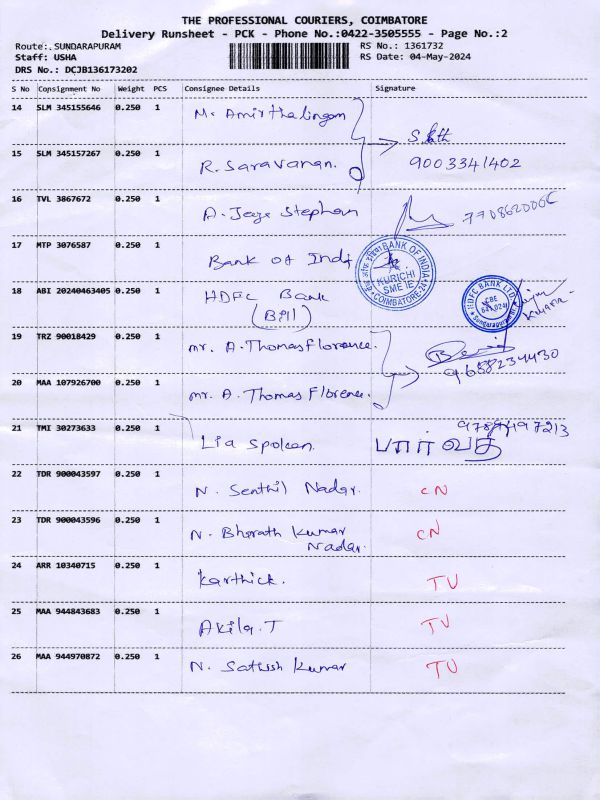 THE PROFESSIONAL COURIERS, COIMBATORE
Delivery Runsheet - PCK - Phone No.:0422-3505555 - Page No.:2
Route:. SUNDARAPURAM RS No.: 1361732
Staff: USHA RS Date: 04-May-2024
DRS No.: DCJB136173202
S No Consignment No Weight PCS Consignee Details Signature
14 SLM 345155646 0.250 1 M. Amirthalingam
15 SLM 345157267 0.250 1 R. Saravanan. 9003341402
16 TVL 3867672 0.250 1 A. Jeya Stephan
17 MTP 3076587 0.250 1 Bank of Ind
BANK OF INDIA
KURICHI
SME IE
COIMBATORE-24
18 ABI 20240463405 0.250 1 HDFC Bank
(Bill)
HDFC BANK LTD
CBE
Sundarapuram
Kumar
19 TRZ 90018429 0.250 1 Mr. A. Thomas Florence.
9688234430
20 MAA 107926700 0.250 1 Mr. A. Thomas Florence.
21 TMI 30273633 0.250 1 Lia Spoken. பார்வதி
22 TDR 900043597 0.250 1 N. Senthil Nadar. CN
23 TDR 900043596 0.250 1 N. Bharath Kumar CN
Nadar.
24 ARR 10340715 0.250 1 Karthick. TV
25 MAA 944843683 0.250 1 Akila.T TV
26 MAA 944970872 0.250 1 N. Sathish Kumar TV